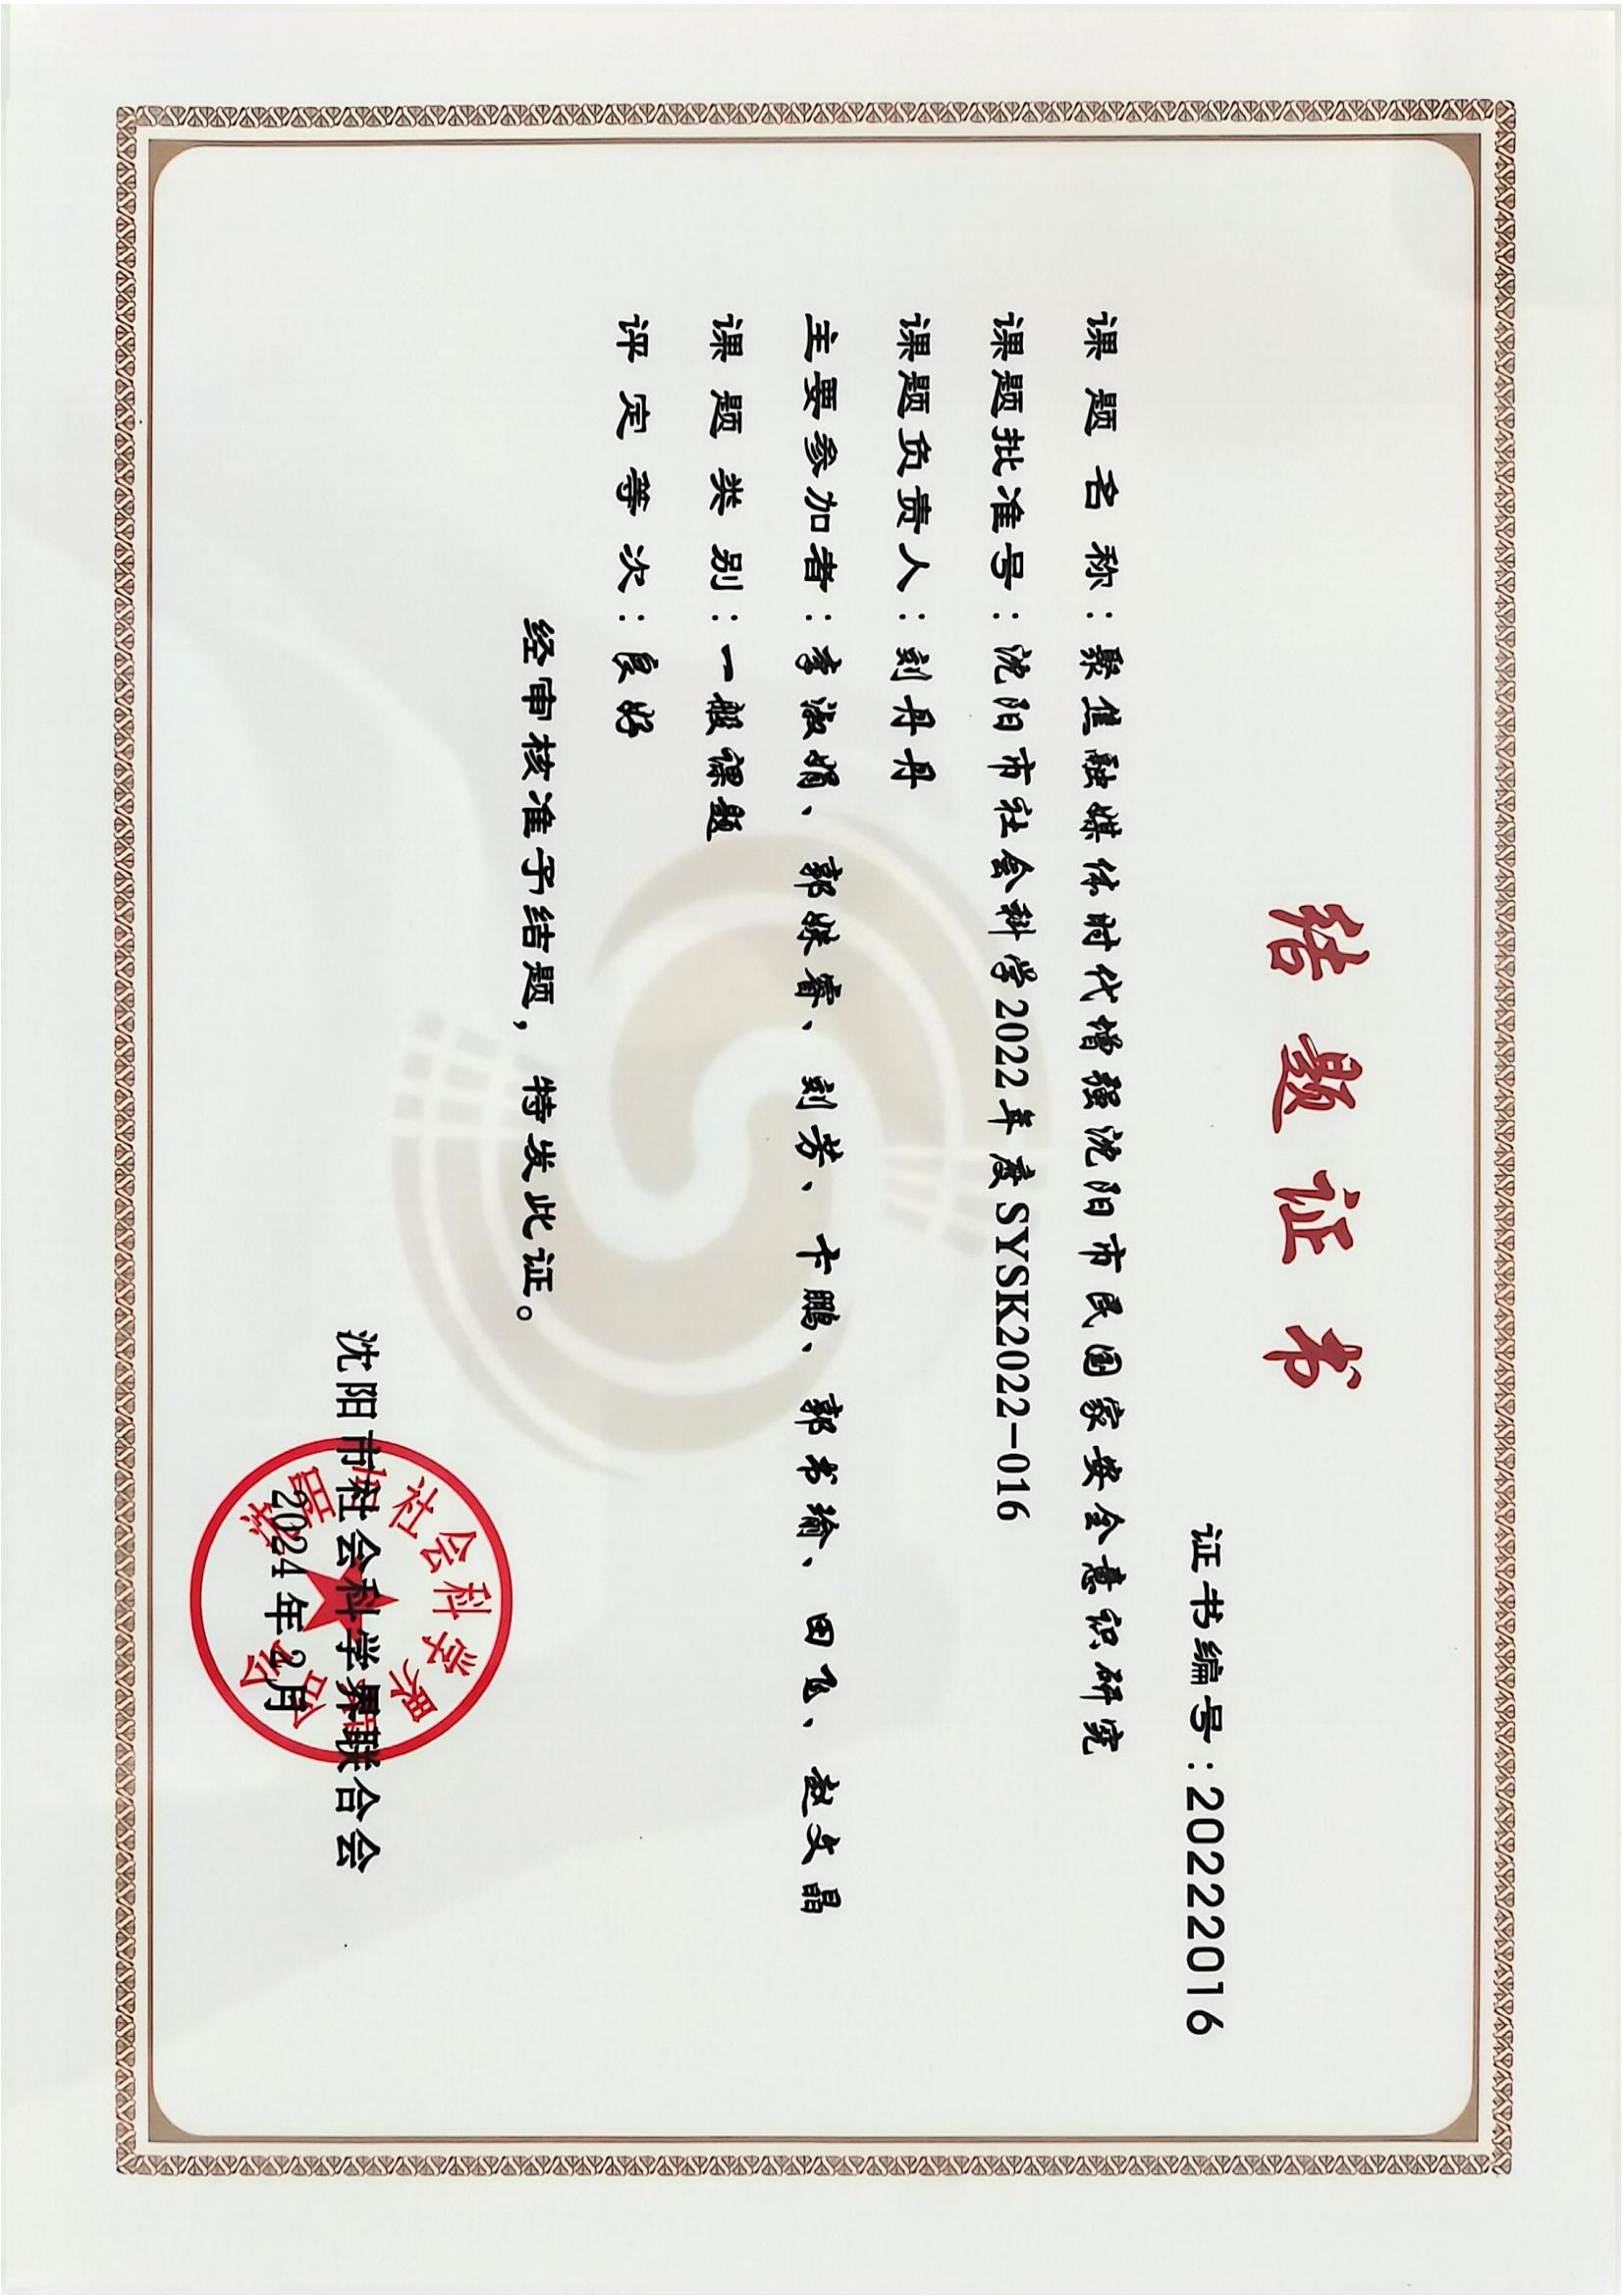 结题证书
证书编号：20222016
课题名称：聚焦融媒体时代增强沈阳市民国家安全意识研究
课题批准号：沈阳市社会科学2022年度SYSK2022-016
课题负责人：刘丹丹
主要参加者：李淑娟、郭姝睿、刘芳、卞鹏、郭书瑜、田飞、赵文晶
课题类别：一般课题
评定等次：良好
经审核准予结题，特发此证。
沈阳市社会科学界联合会
2024年2月
沈阳市社会科学界联合会